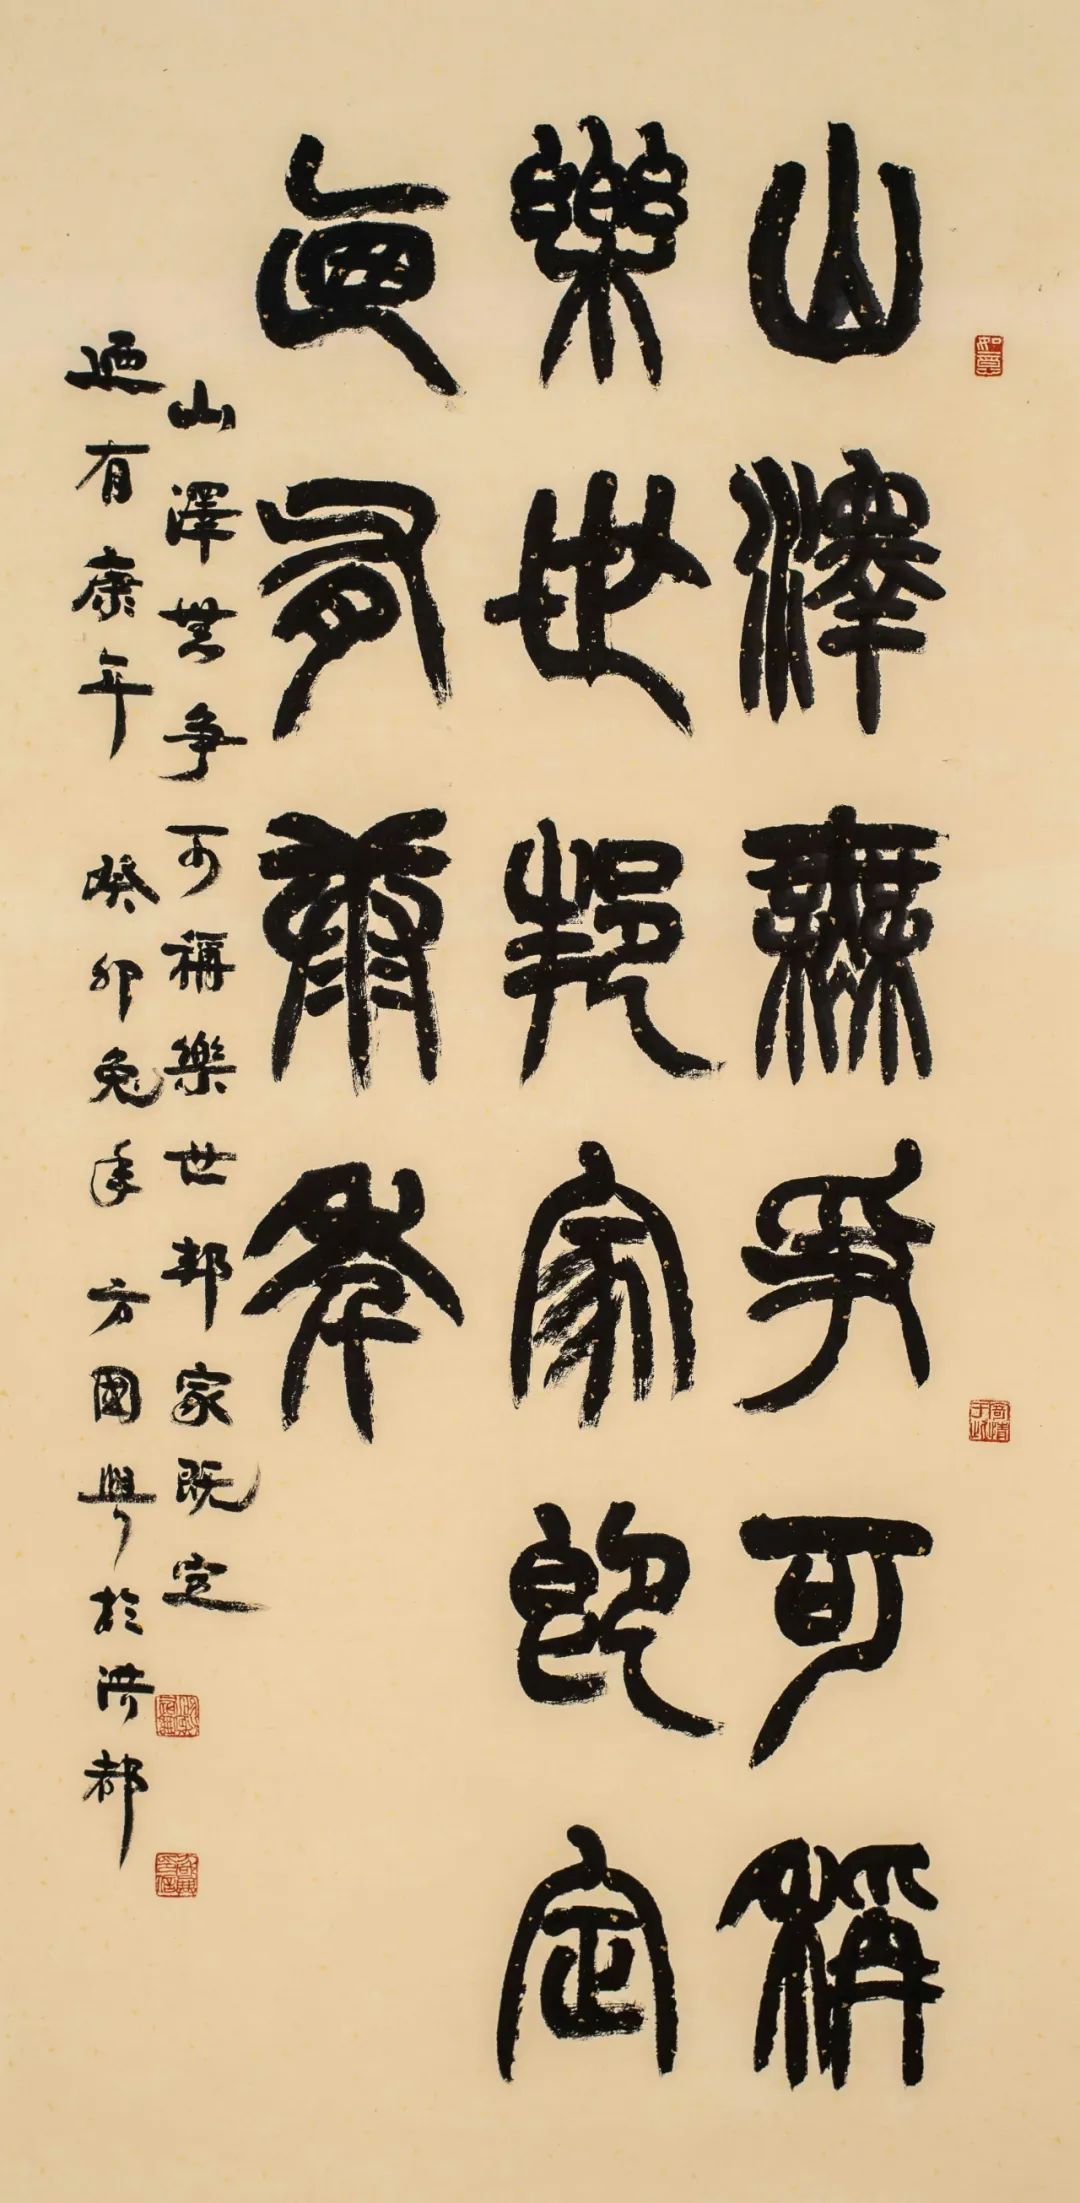 如意
山澤無爭可稱
樂世邦家既定
迺有康年
山澤無爭可稱樂世邦家既定
迺有康年 癸卯兔年 方國興於洪都